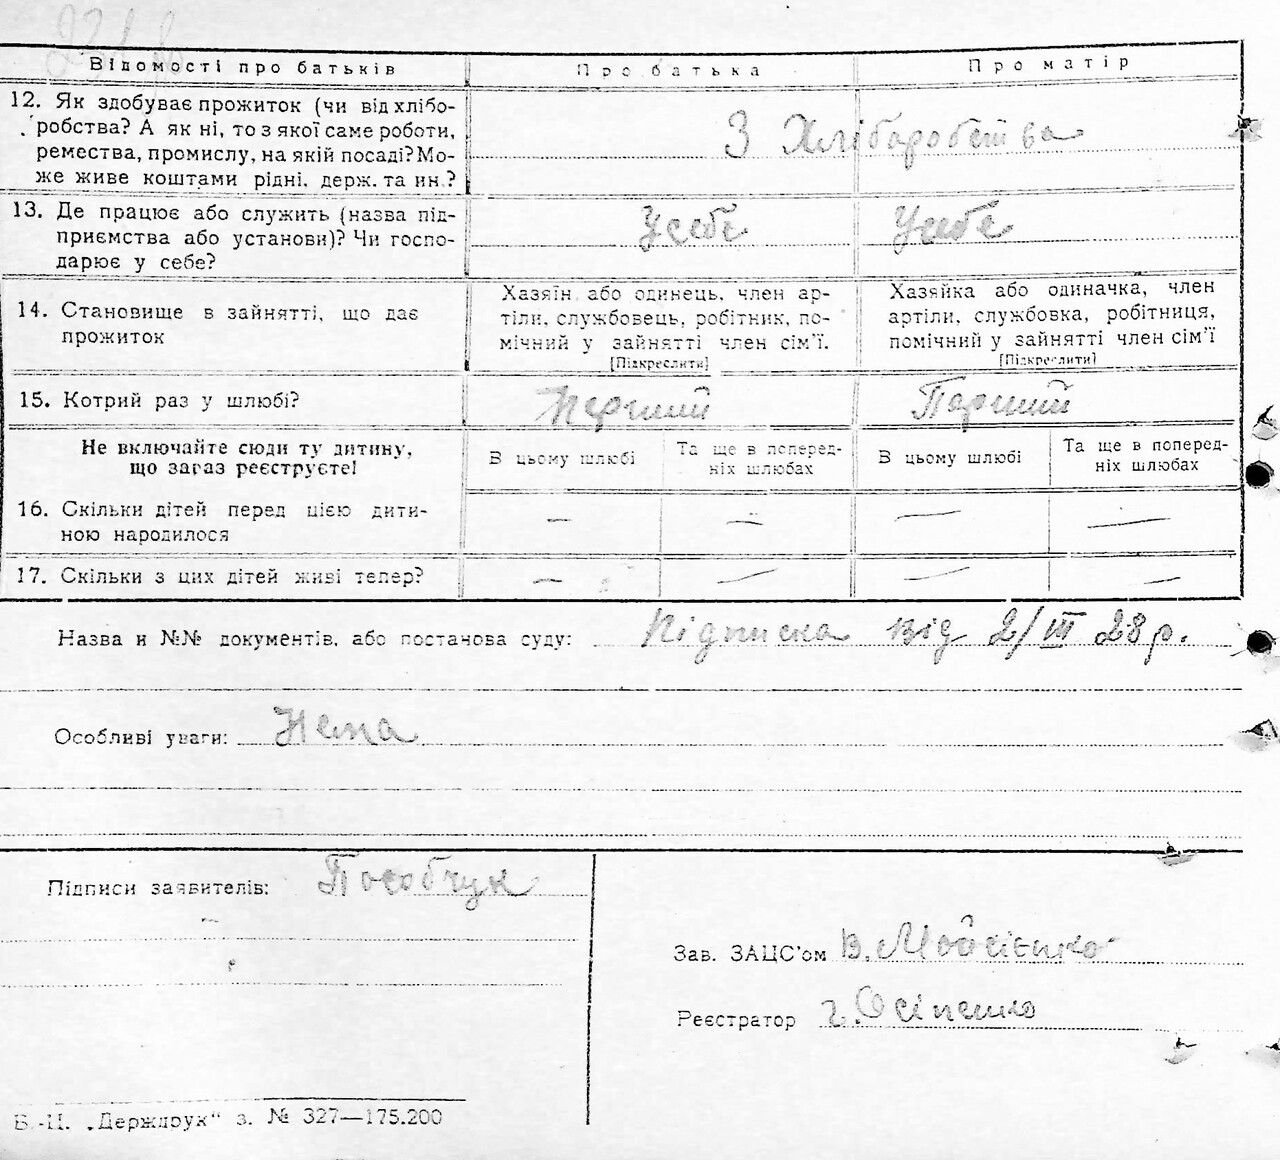 Відомості про батьків Про батька Про матір
12. Як здобуває прожиток (чи від хлібо-
робства? А як ні, то з якої саме роботи,
ремества, промислу, на якій посаді? Мо-
же живе коштами рідні, держ. та ин.?
З Хліборобства
13. Де працює або служить (назва під-
приємства або установи)? Чи госпо-
дарює у себе?
Усебе Усебе
14. Становище в зайнятті, що дає
прожиток
Хазяїн або одинець, член ар-
тіли, службовець, робітник, по-
мічний у зайнятті член сім'ї.
[Підкреслити]
Хазяйка або одиначка, член
артіли, службовка, робітниця,
помічний у зайнятті член сім'ї
[Підкреслити]
15. Котрий раз у шлюбі? Перший Перший
Не включайте сюди ту дитину,
що загаз реєструєте!
В цьому шлюбі
Та ще в поперед-
ніх шлюбах
В цьому шлюбі
Та ще в поперед-
ніх шлюбах
16. Скільки дітей перед цією дити-
ною народилося
— — — —
17. Скільки з цих дітей живі тепер? — — — —
Назва и №№ документів, або постанова суду: Підписка від 2/III 28 р.
Особливі уваги: Нема
Підписи заявителів: Пособчук
Зав. ЗАЦС'ом В. Мойсієнко
Реєстратор Г. Осіпенко
В.-Ц. „Держдрук“ з. № 327—175.200